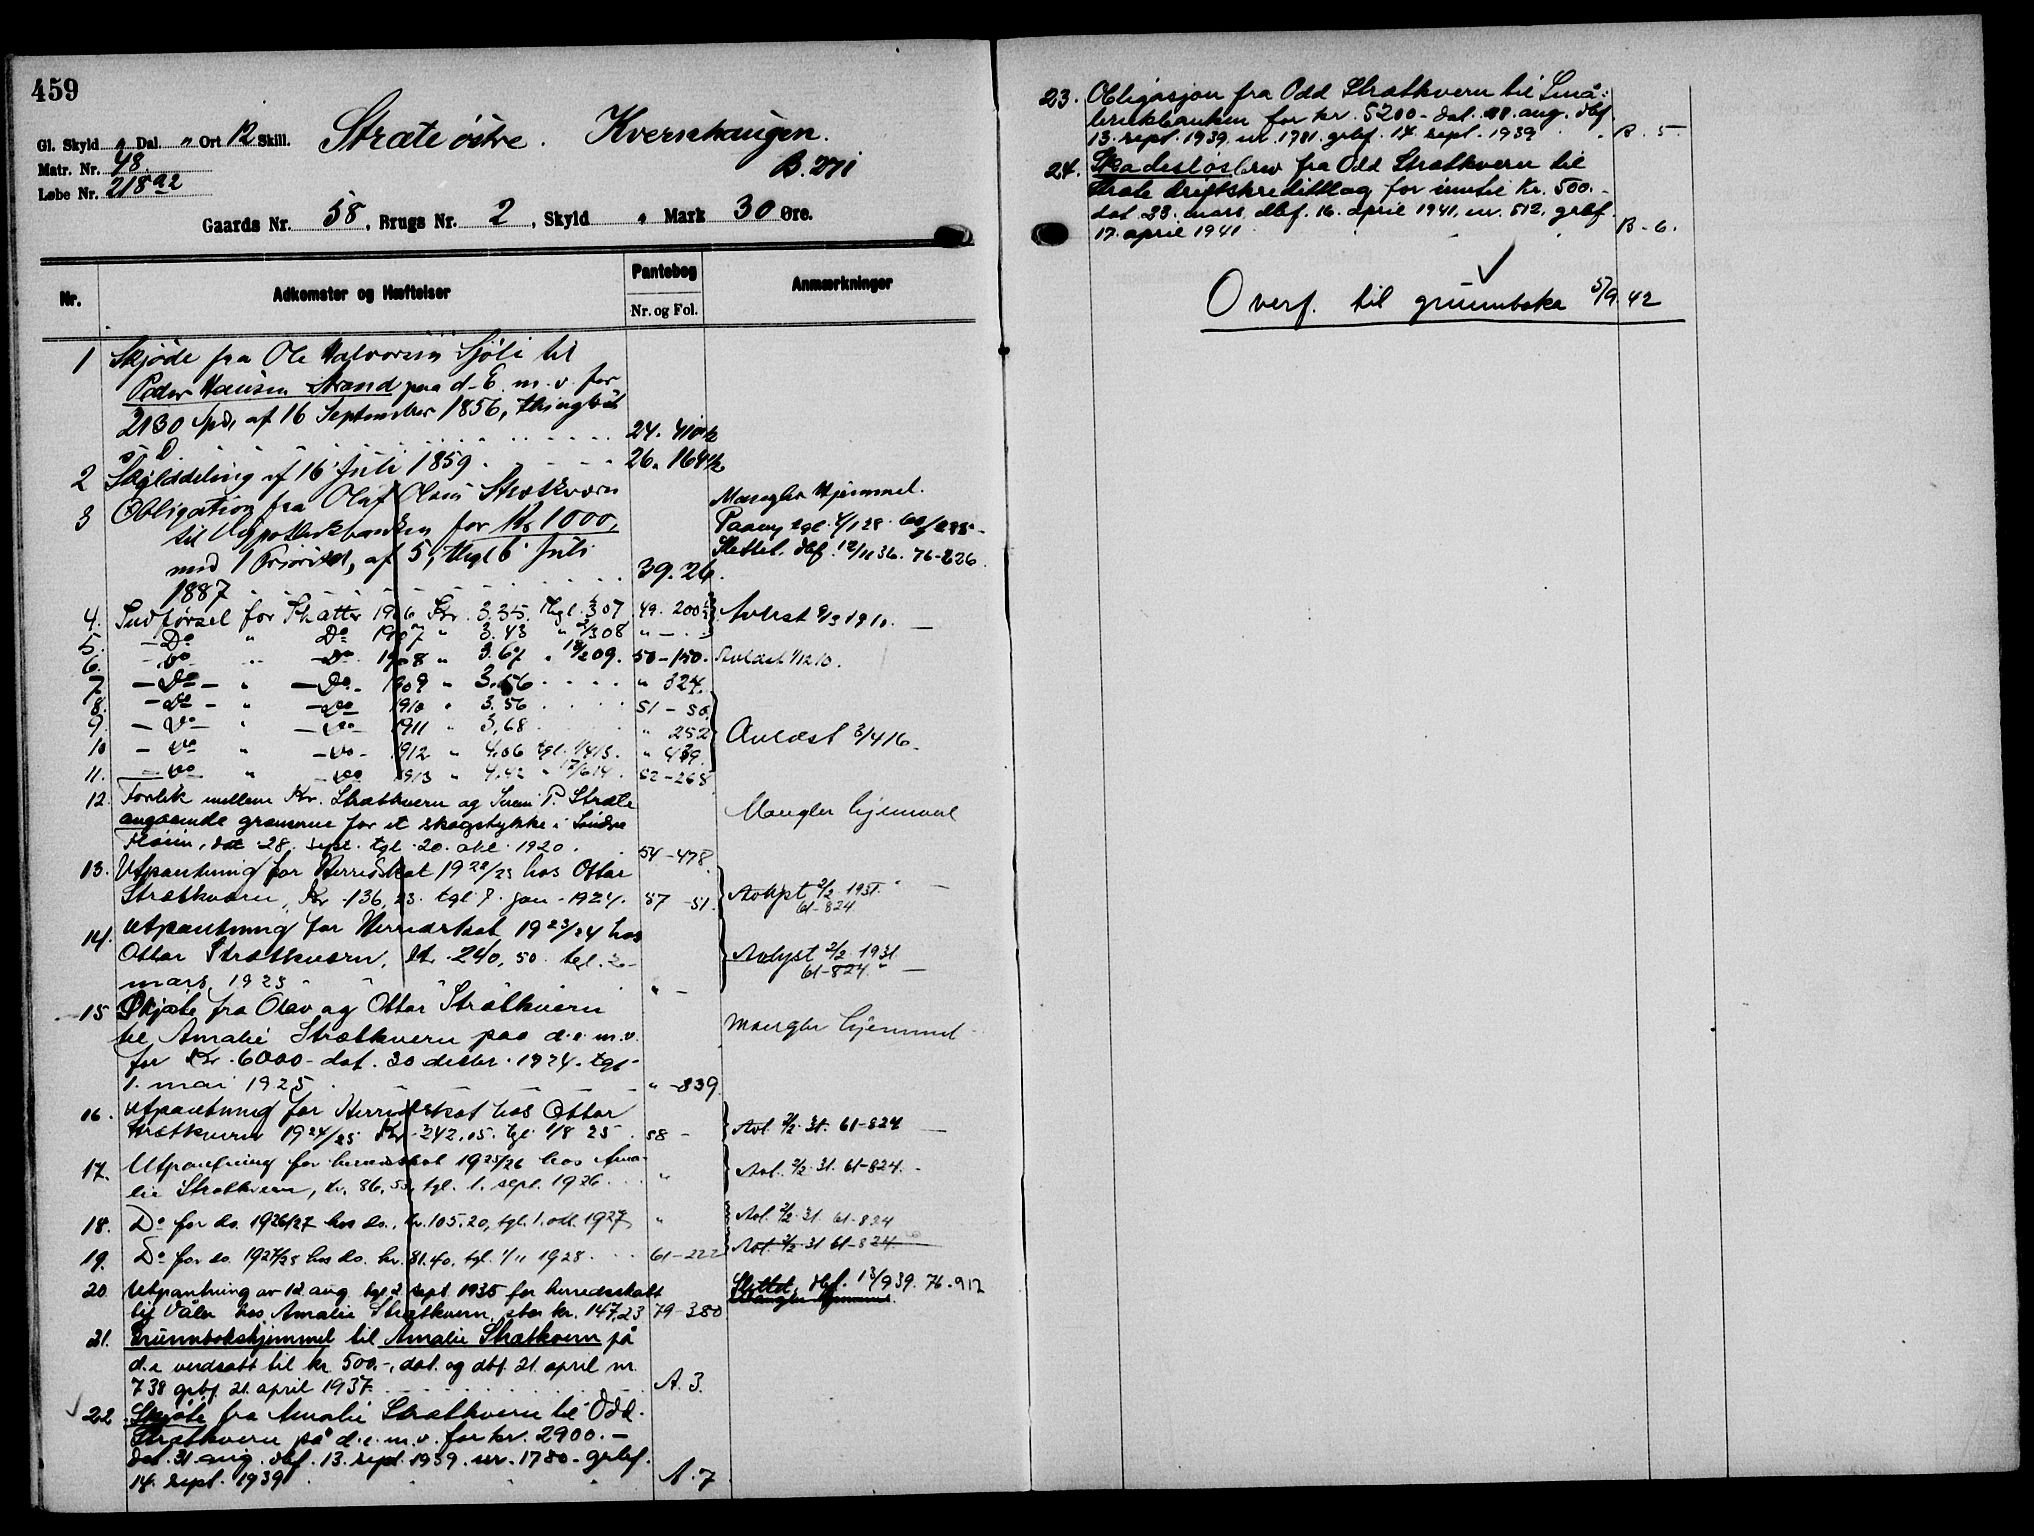 459
Gl. Skyld " Dal. " Ort 12 Skill. Stræte östre. Kvernhaugen.
Matr. Nr. 48. B. 271
Løbe Nr. 218 a2
Gaards Nr. 58, Brugs Nr. 2, Skyld " Mark 30 Øre.
Nr. Adkomster og Hæftelser Pantebog Nr. og Fol. Anmærkninger
1 Skjøde fra Ole Halvorsen Sjøli til
Peder Hansen Strand paa d. E. m. v. for
2130 Spd. af 16 September 1856, thinglæst
s. D. 24. 410
2 Skylddeling af 16 Juli 1859. 26. 164
3 Obligation fra Olaf Olsen Strætkværn Mangler Hjemmel.
til Hypothekbanken for Kr 1000,
med 1 Prioritet, af 5, thgl 6 Juli Slettet. dbf. 12/11 36. 76-226.
1887 39. 26.
4. Indførsel for Skatter 1906 Kr. 3.35. Thgl. 307 49. 200 Avlæst 9/3 1910.
5. - Do " Do 1907 " 3.43 " 2/3 08 " -
6. - Do " - Do 1908 " 3.67 " 18/2 09. 50-150. Avlæst 1/12 10.
7 - Do - " - Do - 1909 " 3.56 " 324.
8. - Do - " - Do 1910 " 3.56 51 - 50.
9. - Do - " - Do - 1911 " 3,68 " 252 Avlæst 3/4 16.
10 - Do " - Do - 1912 " 4,06 tgl. 1/4 13. " 439.
11. - Do " - Do 1913 " 4.42 " 17/6 14. 52-268
12. Forlik mellem Kr. Strætkvern og Simen P. Stræte
angaaende grænserne for et skogstykke i Søndre Mangler hjemmel
Flåien, dat 28. sept. tgl. 20. okt. 1920. 54-478.
13. Utpantning for Herredskat 1922/23 hos Ottar
Strætkværn, Kr. 136,23. tgl 7. jan. 1924. 57 -51. Avlyst 2/2 1931. 61-824
14. Utpantning for Herredskat 1923/24 hos
Ottar Strætkværn, Kr. 240,50 tgl. 2- Avlyst 2/2 1931 61-824.
mars 1925 " -
15 Skjøte fra Olav og Ottar Strætkvern
til Amalie Strætkvern paa d. e. m. v. Mangler hjemmel
for Kr. 6000 - dat. 30 decbr. 1924. tgl
1. mai 1925 " -839.
16. Utpantning for Herredskat hos Ottar
Strætkvern 1924/25 Kr. 242.05. tgl 1/8 25 58 - Avl. 2/2. 31. 61-824
17. Utpantning for herredskat 1925/26 hos Ama-
lie Strætkvern, kr. 86,53, tgl. 1. sept. 1926. " Avl. 2/2. 31. 61-824.
18. Do for do. 1926/27 hos do., kr. 105.20, tgl. 1. okt. 1927 " Avl. 2/2. 31. 61-824
19. Do for do. 1927/28 hos do. kr. 81.40, tgl. 1/11 1928. 61-222 Avl. 2/2. 31 61-824.
20. Utpantning av 12. aug. tgl 2. sept. 1935 for herredsskatt Slettet. dbf. 13/9 39. 76-912
til Våler hos Amalie Strætkvern, stor kr. 147,23 79-380 Mangler hjemmel.
21. Grunnbokshjemmel til Amalie Strætkvern på
d. e. verdsatt til kr. 500.-, dat. og dbf. 21. april nr.
738 grbf. 21. april 1937. A. 3.
22 Skjøte fra Amalie Strætkvern til Odd
Strætkvern på d. e. m. v. for kr. 2900.-
dat. 31 aug. dbf. 13. sept. 1939. nr. 1780. grbf.
14. sept. 1939 A. 7
23. Obligasjon fra Odd Strætkvern til Små-
brukbanken for kr. 5200 - dat. 28. aug. dbf
13. sept. 1939. nr. 1781. grbf. 14. sept. 1939 B. 5
24. Skadesløsbrev fra Odd Strætkvern til
Stræte driftskredittlag for inntil Kr. 500.-
dat. 23. mars, dbf. 16. april 1941, nr. 512, grbf.
17. april 1941 B - 6.
Overf. til grunnboka 5/9. 42